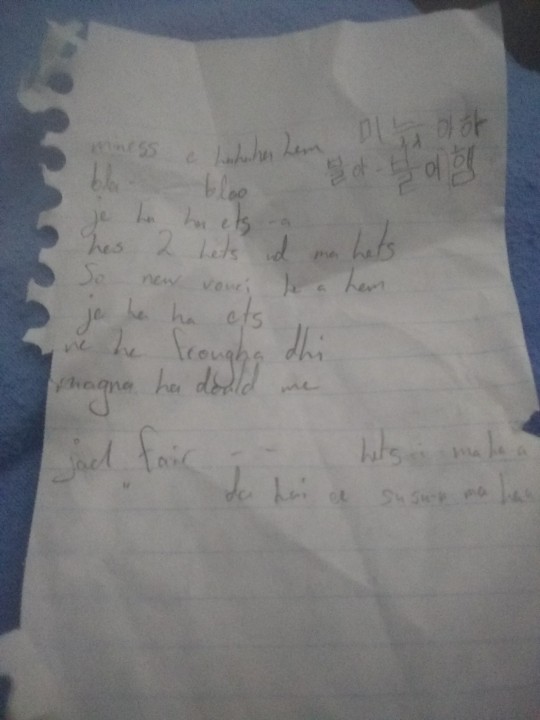 mness a huhuha hem 미능 아하
bla- blao 불아-불이햄
je ha ha ets -a
hes 2 hets id ma hets
So new vouci le a hem
je he ha ets
ne he frougha dhi
magna ha dould me
jael fair -- hets i ma he a
" da hai ae susua ma hau